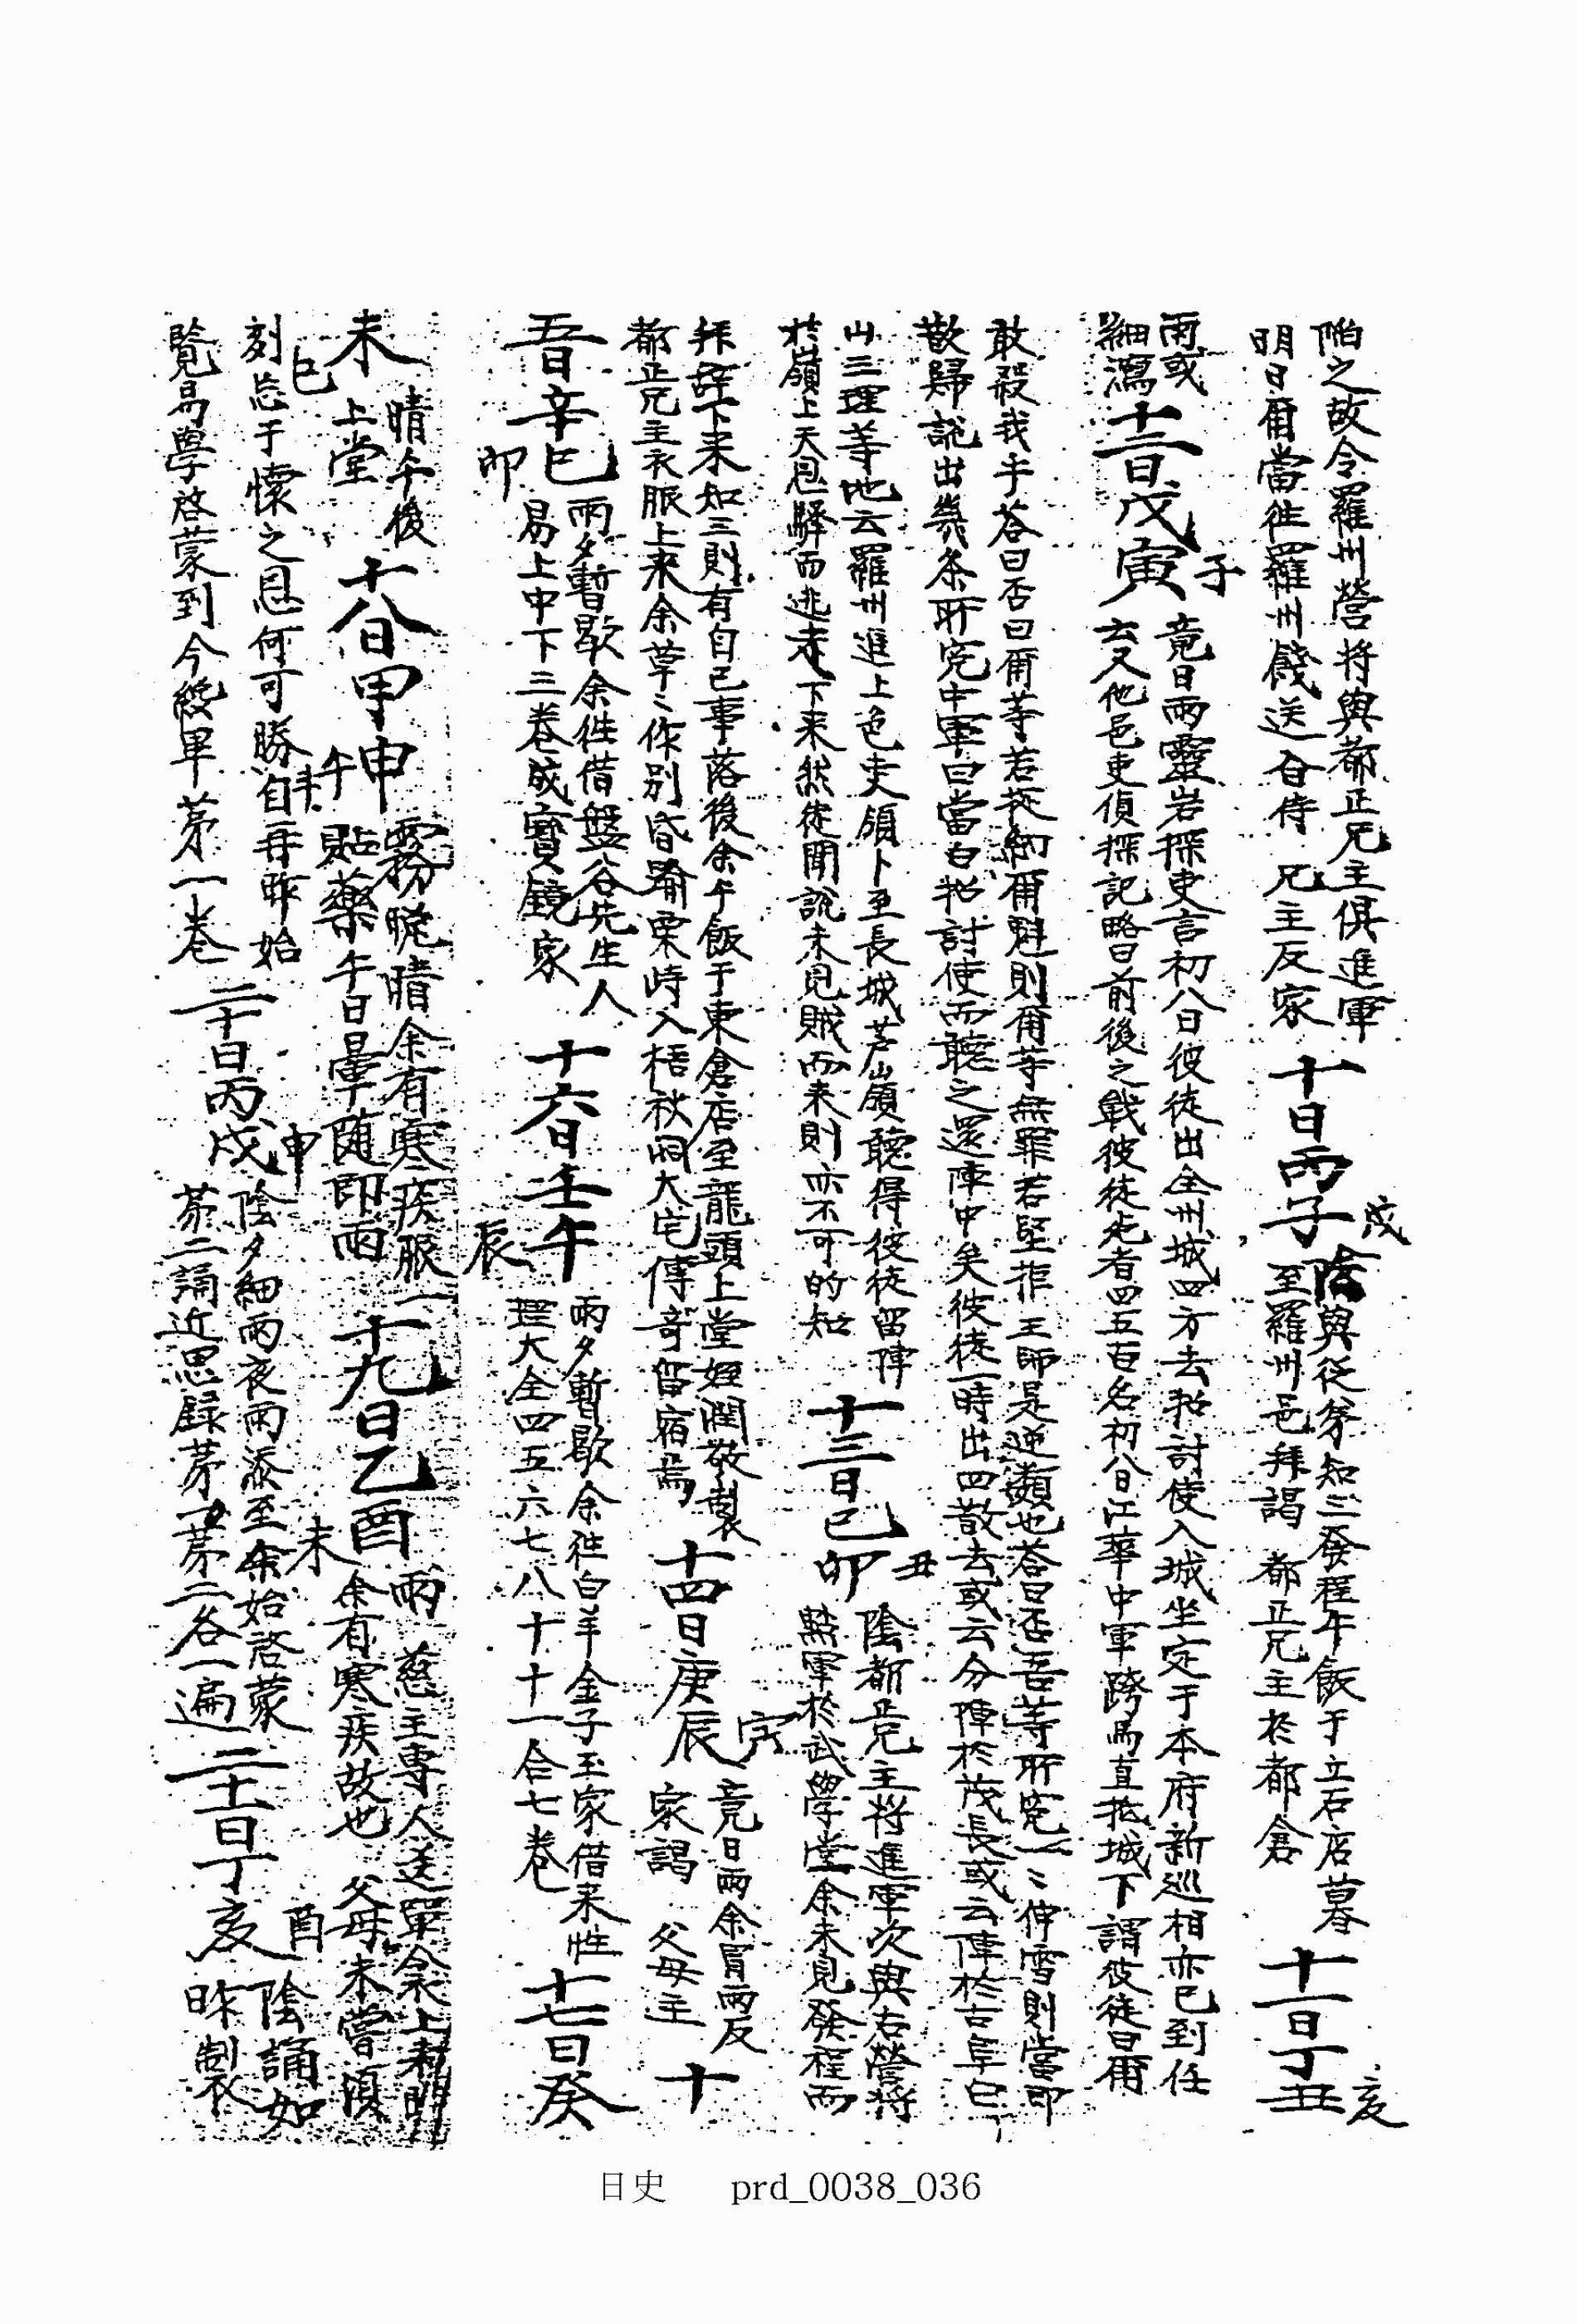 陷之故令羅州營将與都正兄主俱進軍
明日爾當徃羅州餞送一自侍 兄主反家
十日丙子
戌
陰與從弟知三發程午飯于立石店暮
至羅州邑拜謁 都正兄主於都倉
十一日丁丑
亥
雨或
細瀉
十二日戊寅
子
竟日雨靈岩探吏言初八日彼徒出全州城四方去招討使入城坐定于本府新巡相亦已到任
云又他邑吏偵探記略曰前後之戰彼徒死者四五百名初八日江華中軍跨馬直抵城下謂彼徒曰爾
敢殺我乎荅曰否曰爾等若从納爾魁則爾等無罪若堅拒 王師是逆類也荅曰否吾等所寃一〻伸雪則當即
散歸說出幾条所寃中軍曰當白招討使而聽之還陣中矣彼徒一時出四散去或云分陣於茂長或云陣於古阜白
山三理等地云羅州進上色吏領卜至長城芦嶺聽得彼徒留陣
於嶺上天恩驛而逃走下来然徒聞說未見賊而来則亦不可的知
十三日己卯
丑
陰都正兄主将進軍次與右營将
點軍於武學堂余未見發程而
拜辞下来知三則有自己事落後余午飯于東倉店至龍頭上堂姪潤敬製
都正兄主衣服上来余草〻作別昏踰栗峙入梧秋洞大宅傳奇留宿焉
十四日庚辰
寅
竟日雨余冐雨反
家謁 父母主
十
五日辛巳
卯
雨夕暫歇余徃借盤谷先生人
易上中下三卷成寶鏡家
十六日壬午
辰
雨夕暫歇余徃白羊金子玉家借来性
理大全四五六七八十十一合七卷
十七日癸
未
巳
晴午後
上堂
十八日甲申
午
霧晩晴余有寒疾服一
貼藥午日暈随即雨
十九日乙酉
未
雨 慈主專人送單衾上来明
余有寒疾故也 父母未嘗頃
刻忘于懷之恩何可勝自再昨始
覽易學啓蒙到今纔畢苐一卷
二十日丙戌
申
陰夕細雨夜雨添至余始啓蒙
苐二誦近思録苐一苐二各一遍
二十一日丁亥
酉
陰誦如
昨製衣
日史 prd_0038_036